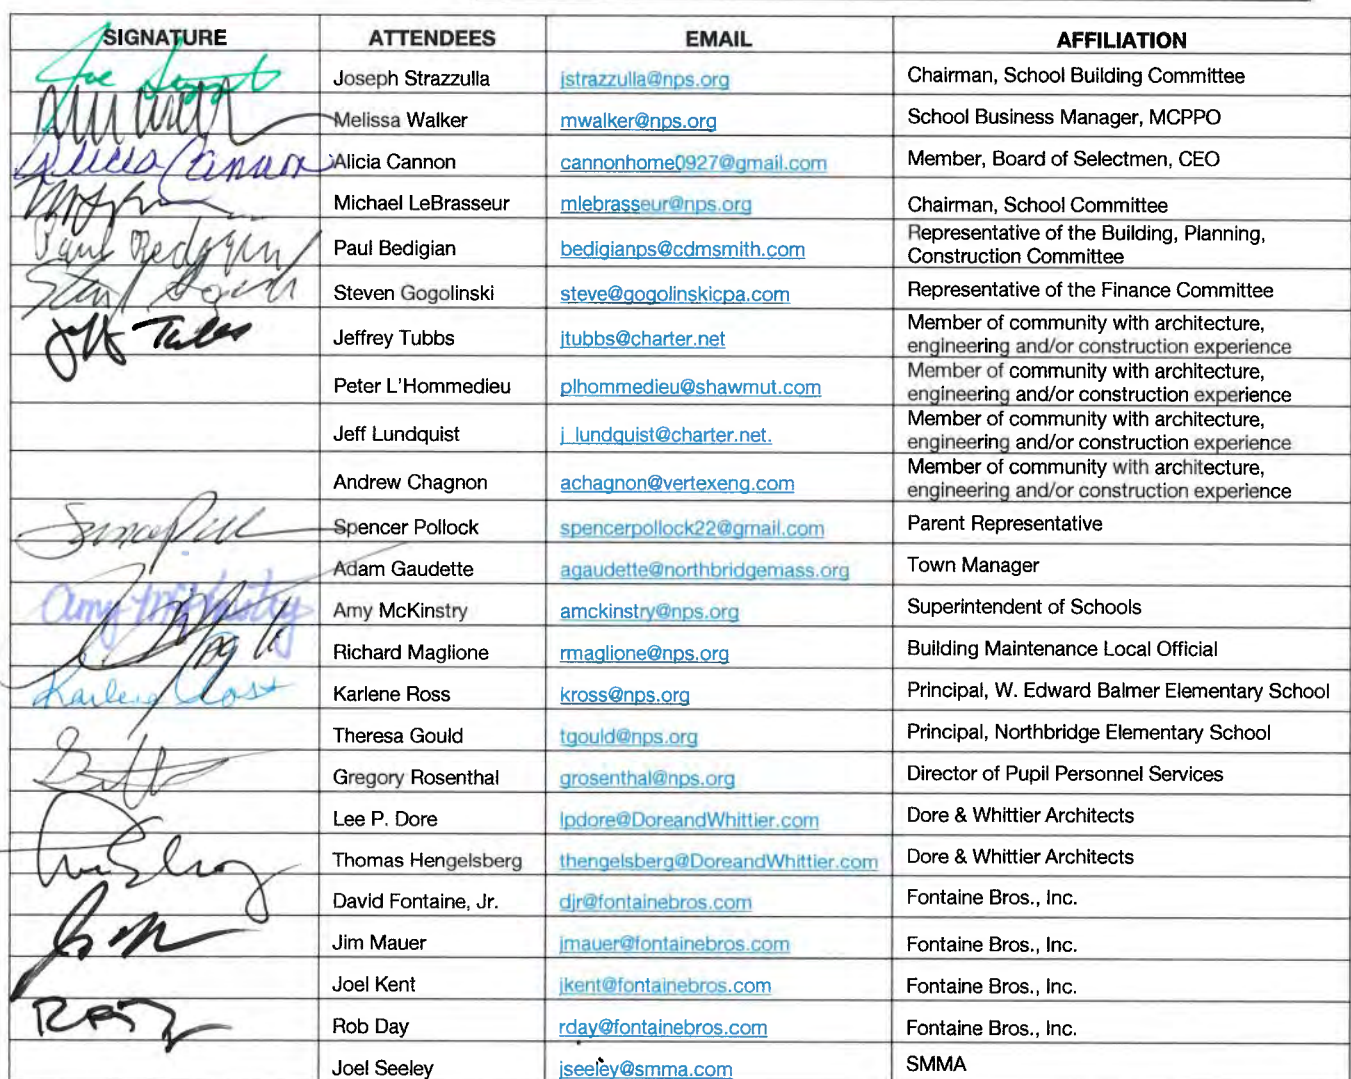 SIGNATURE ATTENDEES EMAIL AFFILIATION
Joseph Strazzulla jstrazzulla@nps.org Chairman, School Building Committee
Melissa Walker mwalker@nps.org School Business Manager, MCPPO
Alicia Cannon Alicia Cannon cannonhome0927@gmail.com Member, Board of Selectmen, CEO
Michael LeBrasseur mlebrasseur@nps.org Chairman, School Committee
Paul Bedigian Paul Bedigian bedigianps@cdmsmith.com Representative of the Building, Planning,
Construction Committee
Steven Gogolinski steve@gogolinskicpa.com Representative of the Finance Committee
Jeff Tubbs Jeffrey Tubbs jtubbs@charter.net Member of community with architecture,
engineering and/or construction experience
Peter L'Hommedieu plhommedieu@shawmut.com Member of community with architecture,
engineering and/or construction experience
Jeff Lundquist j_lundquist@charter.net. Member of community with architecture,
engineering and/or construction experience
Andrew Chagnon achagnon@vertexeng.com Member of community with architecture,
engineering and/or construction experience
Spencer Pollock spencerpollock22@gmail.com Parent Representative
Adam Gaudette agaudette@northbridgemass.org Town Manager
Amy McKinstry Amy McKinstry amckinstry@nps.org Superintendent of Schools
Richard Maglione rmaglione@nps.org Building Maintenance Local Official
Karlene Ross Karlene Ross kross@nps.org Principal, W. Edward Balmer Elementary School
Theresa Gould tgould@nps.org Principal, Northbridge Elementary School
Gregory Rosenthal grosenthal@nps.org Director of Pupil Personnel Services
Lee P. Dore lpdore@DoreandWhittier.com Dore & Whittier Architects
Thomas Hengelsberg thengelsberg@DoreandWhittier.com Dore & Whittier Architects
David Fontaine, Jr. djr@fontainebros.com Fontaine Bros., Inc.
Jim Mauer jmauer@fontainebros.com Fontaine Bros., Inc.
Joel Kent jkent@fontainebros.com Fontaine Bros., Inc.
Rob Day rday@fontainebros.com Fontaine Bros., Inc.
Joel Seeley jseeley@smma.com SMMA